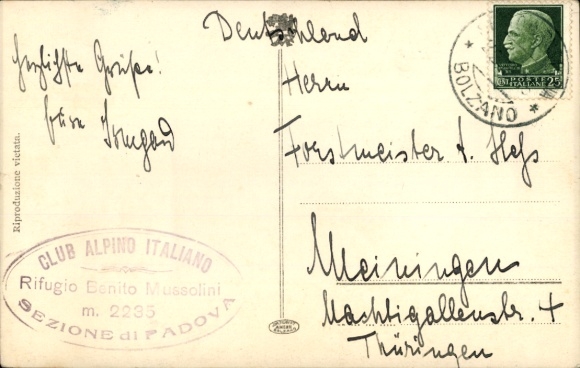 Deutschland
Herzlichste Grüße!
Eure Irmgard
Herrn
Forstmeister A. Heß
Meiningen
Nachtigallenstr. 4
Thüringen
Riproduzione vietata.
CLUB ALPINO ITALIANO
Rifugio Benito Mussolini
m. 2235
SEZIONE di PADOVA
POSTE
ITALIANE
CENT 25
BOLZANO